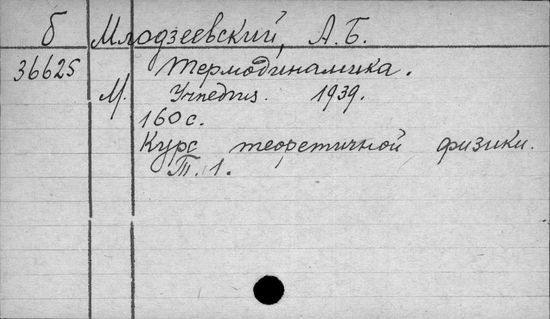 б Млодзеевский, А.Б.
36625 Термодинамика.
М. Учпедгиз. 1939.
160 с.
Курс теоретичной физики.
Т. 1.